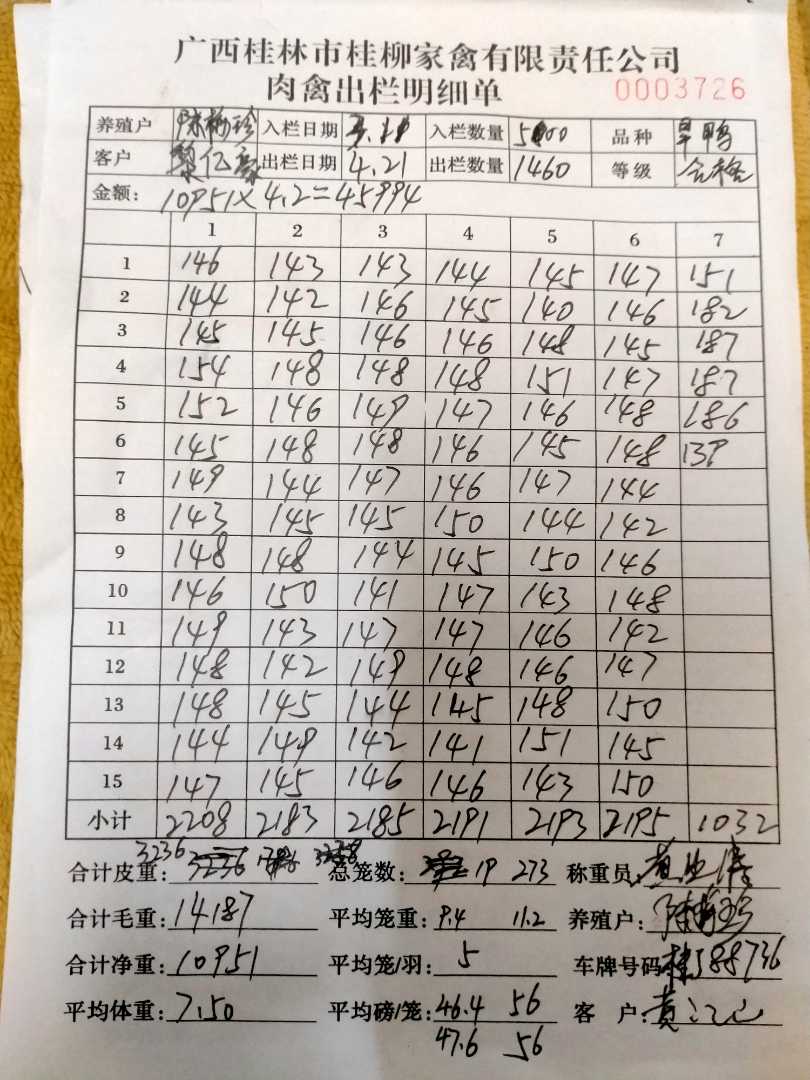 广西桂林市桂柳家禽有限责任公司
肉禽出栏明细单 0003726
养殖户 入栏日期 入栏数量 品种 旱鸭
客户 黎亿豪 出栏日期 4.21 出栏数量 1460 等级 合格
金额: 10951×4.2=45994
1 2 3 4 5 6 7
1 146 143 143 144 145 147 151
2 144 142 146 145 140 146 182
3 145 145 146 146 148 145 187
4 154 148 148 148 151 147 187
5 152 146 149 147 146 148 186
6 145 148 148 146 145 148 139
7 149 144 147 146 147 144
8 143 145 145 150 144 142
9 148 148 144 145 150 146
10 146 150 141 147 143 148
11 149 143 147 147 146 142
12 148 142 149 148 146 147
13 148 145 144 145 148 150
14 144 149 142 141 151 145
15 147 145 146 146 143 150
小计 2208 2183 2185 2191 2193 2195 1032
合计皮重: 3236 总笼数: 19 273 称重员:
合计毛重: 14187 平均笼重: 9.4 11.2 养殖户:
合计净重: 10951 平均笼/羽: 5 车牌号码 桂J88736
平均体重: 7.50 平均磅/笼: 46.4 56 客 户:
47.6 56